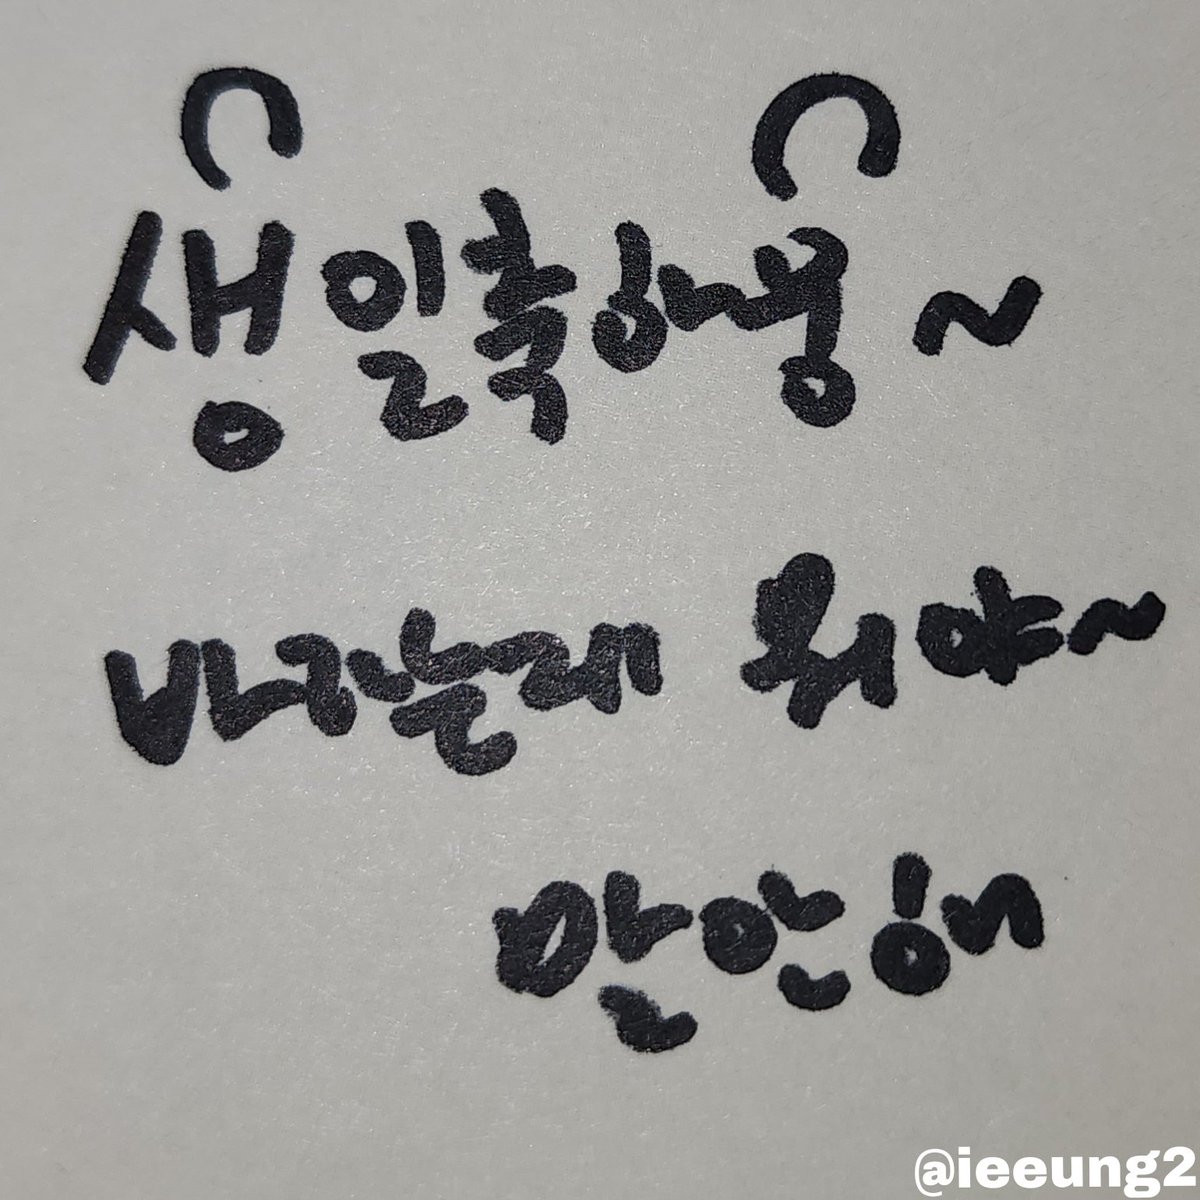 생일축하행~
바라는레 뭐야~
말안해
@ieeung2